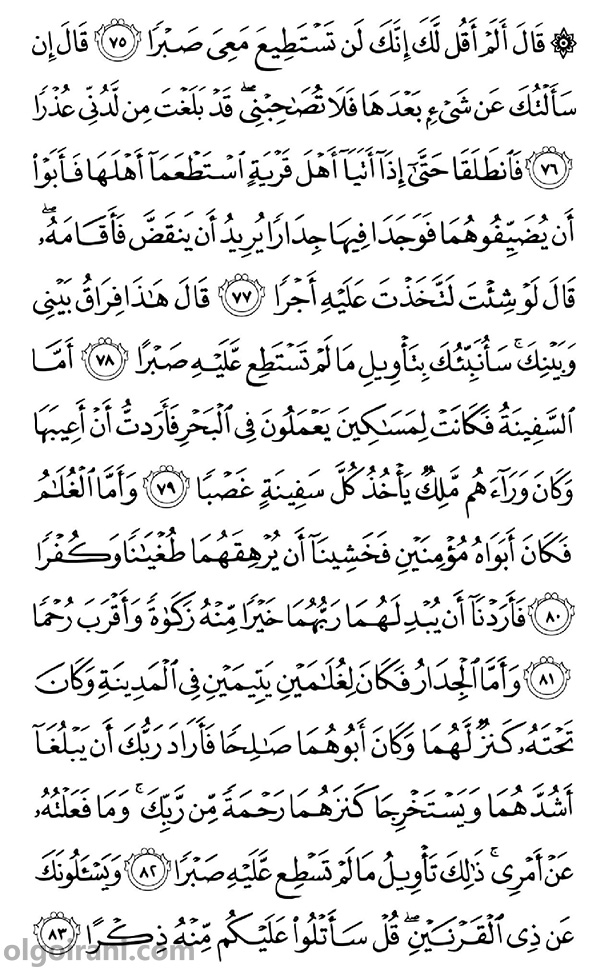 ۞ قَالَ أَلَمْ أَقُل لَّكَ إِنَّكَ لَن تَسْتَطِيعَ مَعِىَ صَبْرًا ٧٥ قَالَ إِن
سَأَلْتُكَ عَن شَىْءٍۭ بَعْدَهَا فَلَا تُصَٰحِبْنِى ۖ قَدْ بَلَغْتَ مِن لَّدُنِّى عُذْرًا
٧٦ فَٱنطَلَقَا حَتَّىٰٓ إِذَآ أَتَيَآ أَهْلَ قَرْيَةٍ ٱسْتَطْعَمَآ أَهْلَهَا فَأَبَوْا۟
أَن يُضَيِّفُوهُمَا فَوَجَدَا فِيهَا جِدَارًا يُرِيدُ أَن يَنقَضَّ فَأَقَامَهُۥ ۖ
قَالَ لَوْ شِئْتَ لَتَّخَذْتَ عَلَيْهِ أَجْرًا ٧٧ قَالَ هَٰذَا فِرَاقُ بَيْنِى
وَبَيْنِكَ ۚ سَأُنَبِّئُكَ بِتَأْوِيلِ مَا لَمْ تَسْتَطِع عَّلَيْهِ صَبْرًا ٧٨ أَمَّا
ٱلسَّفِينَةُ فَكَانَتْ لِمَسَٰكِينَ يَعْمَلُونَ فِى ٱلْبَحْرِ فَأَرَدتُّ أَنْ أَعِيبَهَا
وَكَانَ وَرَآءَهُم مَّلِكٌ يَأْخُذُ كُلَّ سَفِينَةٍ غَصْبًا ٧٩ وَأَمَّا ٱلْغُلَٰمُ
فَكَانَ أَبَوَاهُ مُؤْمِنَيْنِ فَخَشِينَآ أَن يُرْهِقَهُمَا طُغْيَٰنًا وَكُفْرًا
٨٠ فَأَرَدْنَآ أَن يُبْدِلَهُمَا رَبُّهُمَا خَيْرًا مِّنْهُ زَكَوٰةً وَأَقْرَبَ رُحْمًا
٨١ وَأَمَّا ٱلْجِدَارُ فَكَانَ لِغُلَٰمَيْنِ يَتِيمَيْنِ فِى ٱلْمَدِينَةِ وَكَانَ
تَحْتَهُۥ كَنزٌ لَّهُمَا وَكَانَ أَبُوهُمَا صَٰلِحًا فَأَرَادَ رَبُّكَ أَن يَبْلُغَآ
أَشُدَّهُمَا وَيَسْتَخْرِجَا كَنزَهُمَا رَحْمَةً مِّن رَّبِّكَ ۚ وَمَا فَعَلْتُهُۥ
عَنْ أَمْرِى ۚ ذَٰلِكَ تَأْوِيلُ مَا لَمْ تَسْطِع عَّلَيْهِ صَبْرًا ٨٢ وَيَسْـَٔلُونَكَ
عَن ذِى ٱلْقَرْنَيْنِ ۖ قُلْ سَأَتْلُوا۟ عَلَيْكُم مِّنْهُ ذِكْرًا ٨٣
olgoirani.com